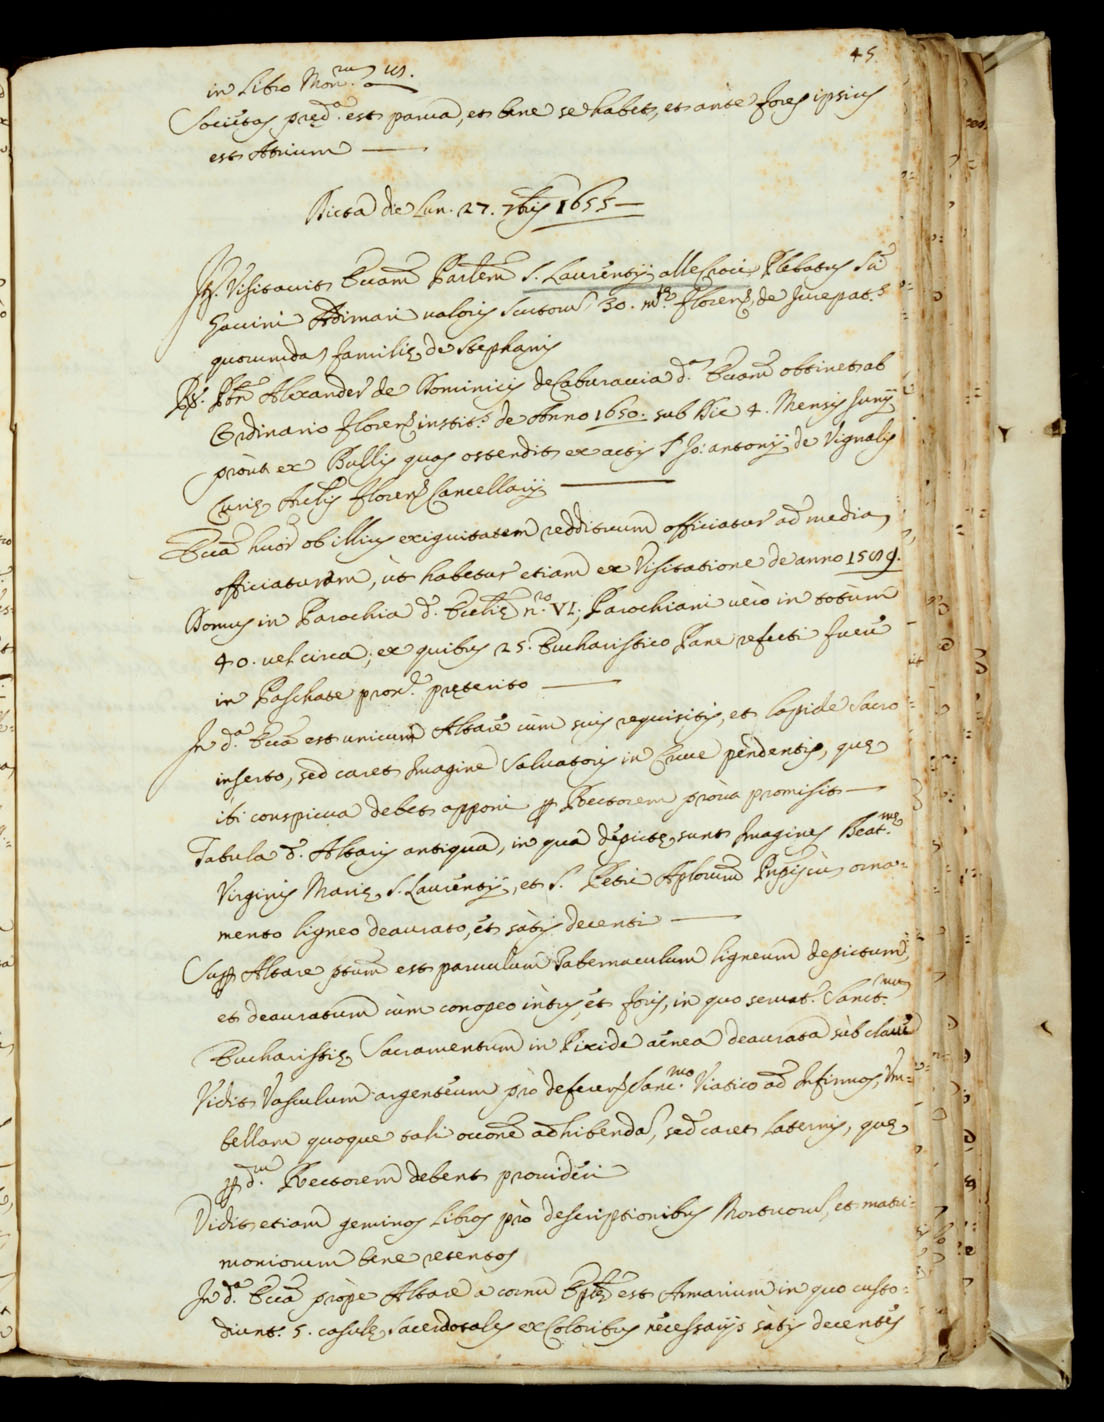 45.
in Libro Mon.rm us.
Societas pred.a est parua, et bene se habet, et ante fores ipsius
est Atrium
Dicta die Lun. 27. 7bris 1655
Visitauit Eccam Parlem S. Laurentij alle Croci Plebatus Sti
Gauini Adimari ualoris Scutorum 30. mtæ florenæ, de Jurepat.s
quorumdã familiæ de Stephanis
Ptr Alexander de Dominicis de Caburaccia d.a Eccam obtinet ab
Ordinario floren. instit.s de Anno 1650. sub Die 4. Mensis Junij
pròut ex Bullis quas ostendit ex actis S. Jo: antonij de Vignalis
Curiæ Archis floren. Cancellarij
Ecca huor ob illius exiguitatem reddituum officiatur ad media
officiaturam, ùt habetur etiam ex Visitatione de anno 1509.
Domus in Parochia d. Eccliæ n.ro VI; Parochiani uèro in totùm
40. uel circa; ex quibus 25. Eucharistico Pane refecti fuerũ
in Paschate prox. preterito
In d.a Ecca est unicum Altare cùm suis requisitis, et lapide sacro
inserto, sed caret Imagine Saluatoris in Cruce pèndentis, quæ
ibi conspicua debet apponi ꝑ Rectorem proua promisit
Tabula d. Altaris antiqua, in qua depictę sunt Imagines Beat.me
Virginis Mariæ, S. Laurentij, et S. Petri Aplorum cù orna-
mento ligneo deaurato, et sàtis decenti
Supꝑ Altare ptum est paruulum Tabernaculum ligneum depictum,
et deauratum cùm conopeo intùs, et foris, in quo seruat.r Sanct.mum
Eucharistiæ Sacramentum in Pixide aenea deaurata sùb claue
Vidit Vasculum argenteum prò deferen. Sanc.mo Viatico ad Infirmos, Vm-
bellam quoque tali occone adhibendã, sed caret Laternis, quæ
ꝑ d.m Rectorem debent prouideri
Vidit etiam geminos Libros prò descriptionibus Mortuorũ, et matri-
moniorum bene retentos
In d.a Ecca pròpe Altare a cornu Eplæ est Armarium in quo custo-
diunt.r 5. casulę Sacerdotales ex Coloribus necessarijs sàtis decentes